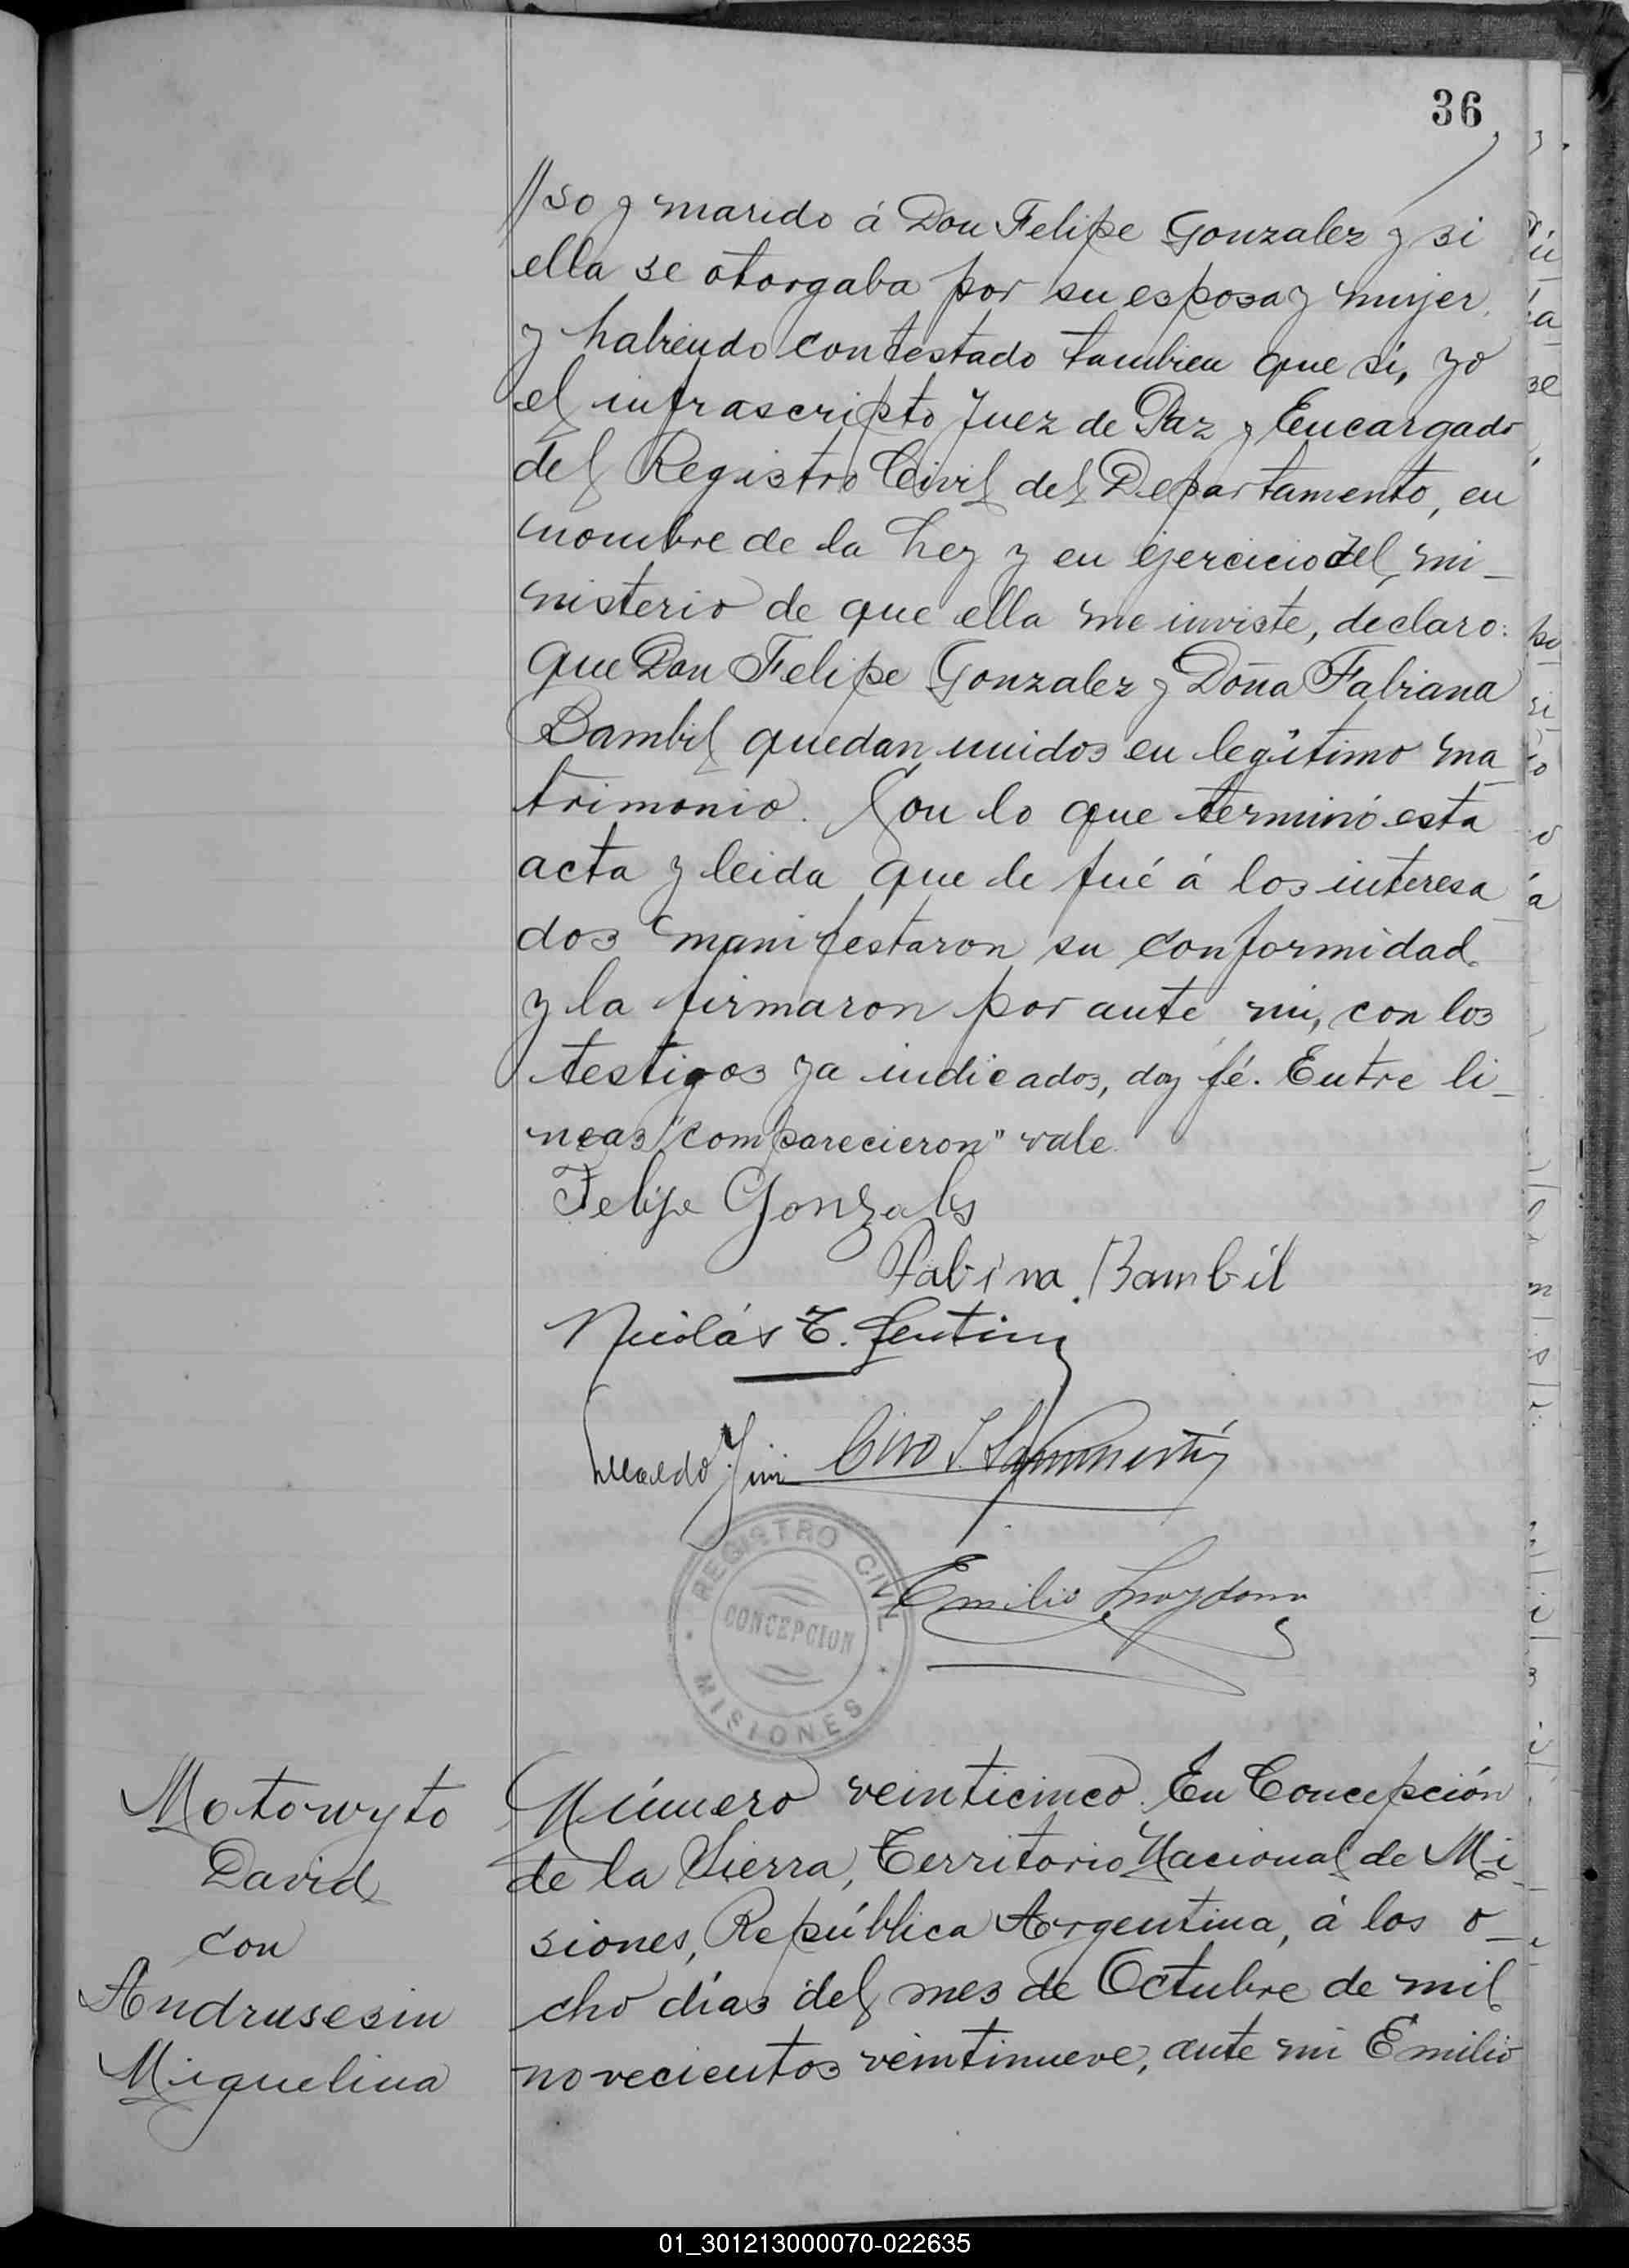 36
//so y marido á Don Felipe Gonzalez y si
ella se otorgaba por su esposa y mujer,
y habiendo contestado tambien que sí, yo
el infrascripto Juez de Paz y Encargado
del Registro Civil del Departamento, en
nombre de la Ley y en ejercicio del mi-
nisterio de que ella me inviste, declaro:
que Don Felipe Gonzalez y Doña Fabiana
Bambil quedan unidos en legítimo ma-
trimonio. Con lo que terminó esta
acta y leida que le fué á los interesa
dos manifestaron su conformidad
y la firmaron por ante mi, con los
testigos ya indicados, doy fé. Entre li-
neas "comparecieron" vale.
Felipe Gonzales
Fabina Bambil
Nicolás T.
Ciro
REGISTRO CIVIL
CONCEPCION
MISIONES
Emilio
Motowyto
David
con
Andrusesin
Miguelina
Número veinticinco. En Concepción
de la Sierra, Territorio Nacional de Mi-
siones, República Argentina, á los o-
cho días del mes de Octubre de mil
novecientos veintinueve, ante mi Emilio
01_301213000070-022635